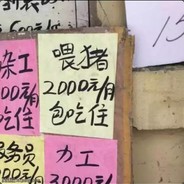 600元/
杂工
000元/月
包吃住
喂猪
2000元/月
包吃住
服务员
力工
3000元/